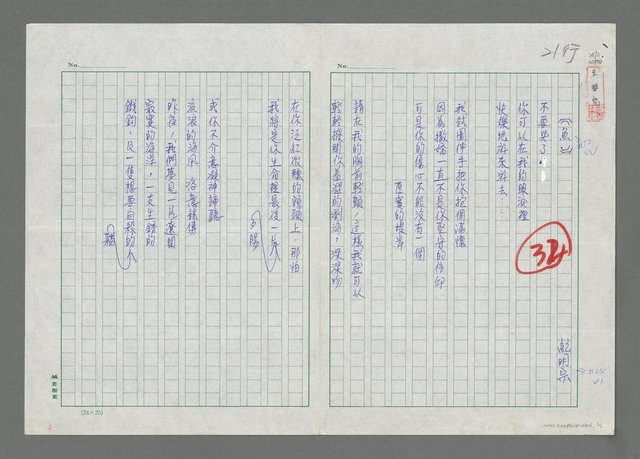 No.
21行
〈魚〉
紀明宗
不要哭了。
你可以在我的眼淚裡
快樂地游來游去……
我試圖伸手把你抱個滿懷
因為撒嬌一直不是你堅守的信仰
可是你的傷心不能沒有一個
厚實的堤岸
請在我的胸前輕顫，這樣我就可以
輕輕撥開你羞澀的瀏海，深深吻
324
No.
在你泛紅微醺的額頭上，那怕
我將是你生命裡最後一片
夕陽
或你不介意凝神諦聽
浪浪的海風
昨夜，我們夢見一片遼闊
寂寞的海洋，一支生鏽的
鐵鉤，及一隻想要自殺的
貓
(24×25)